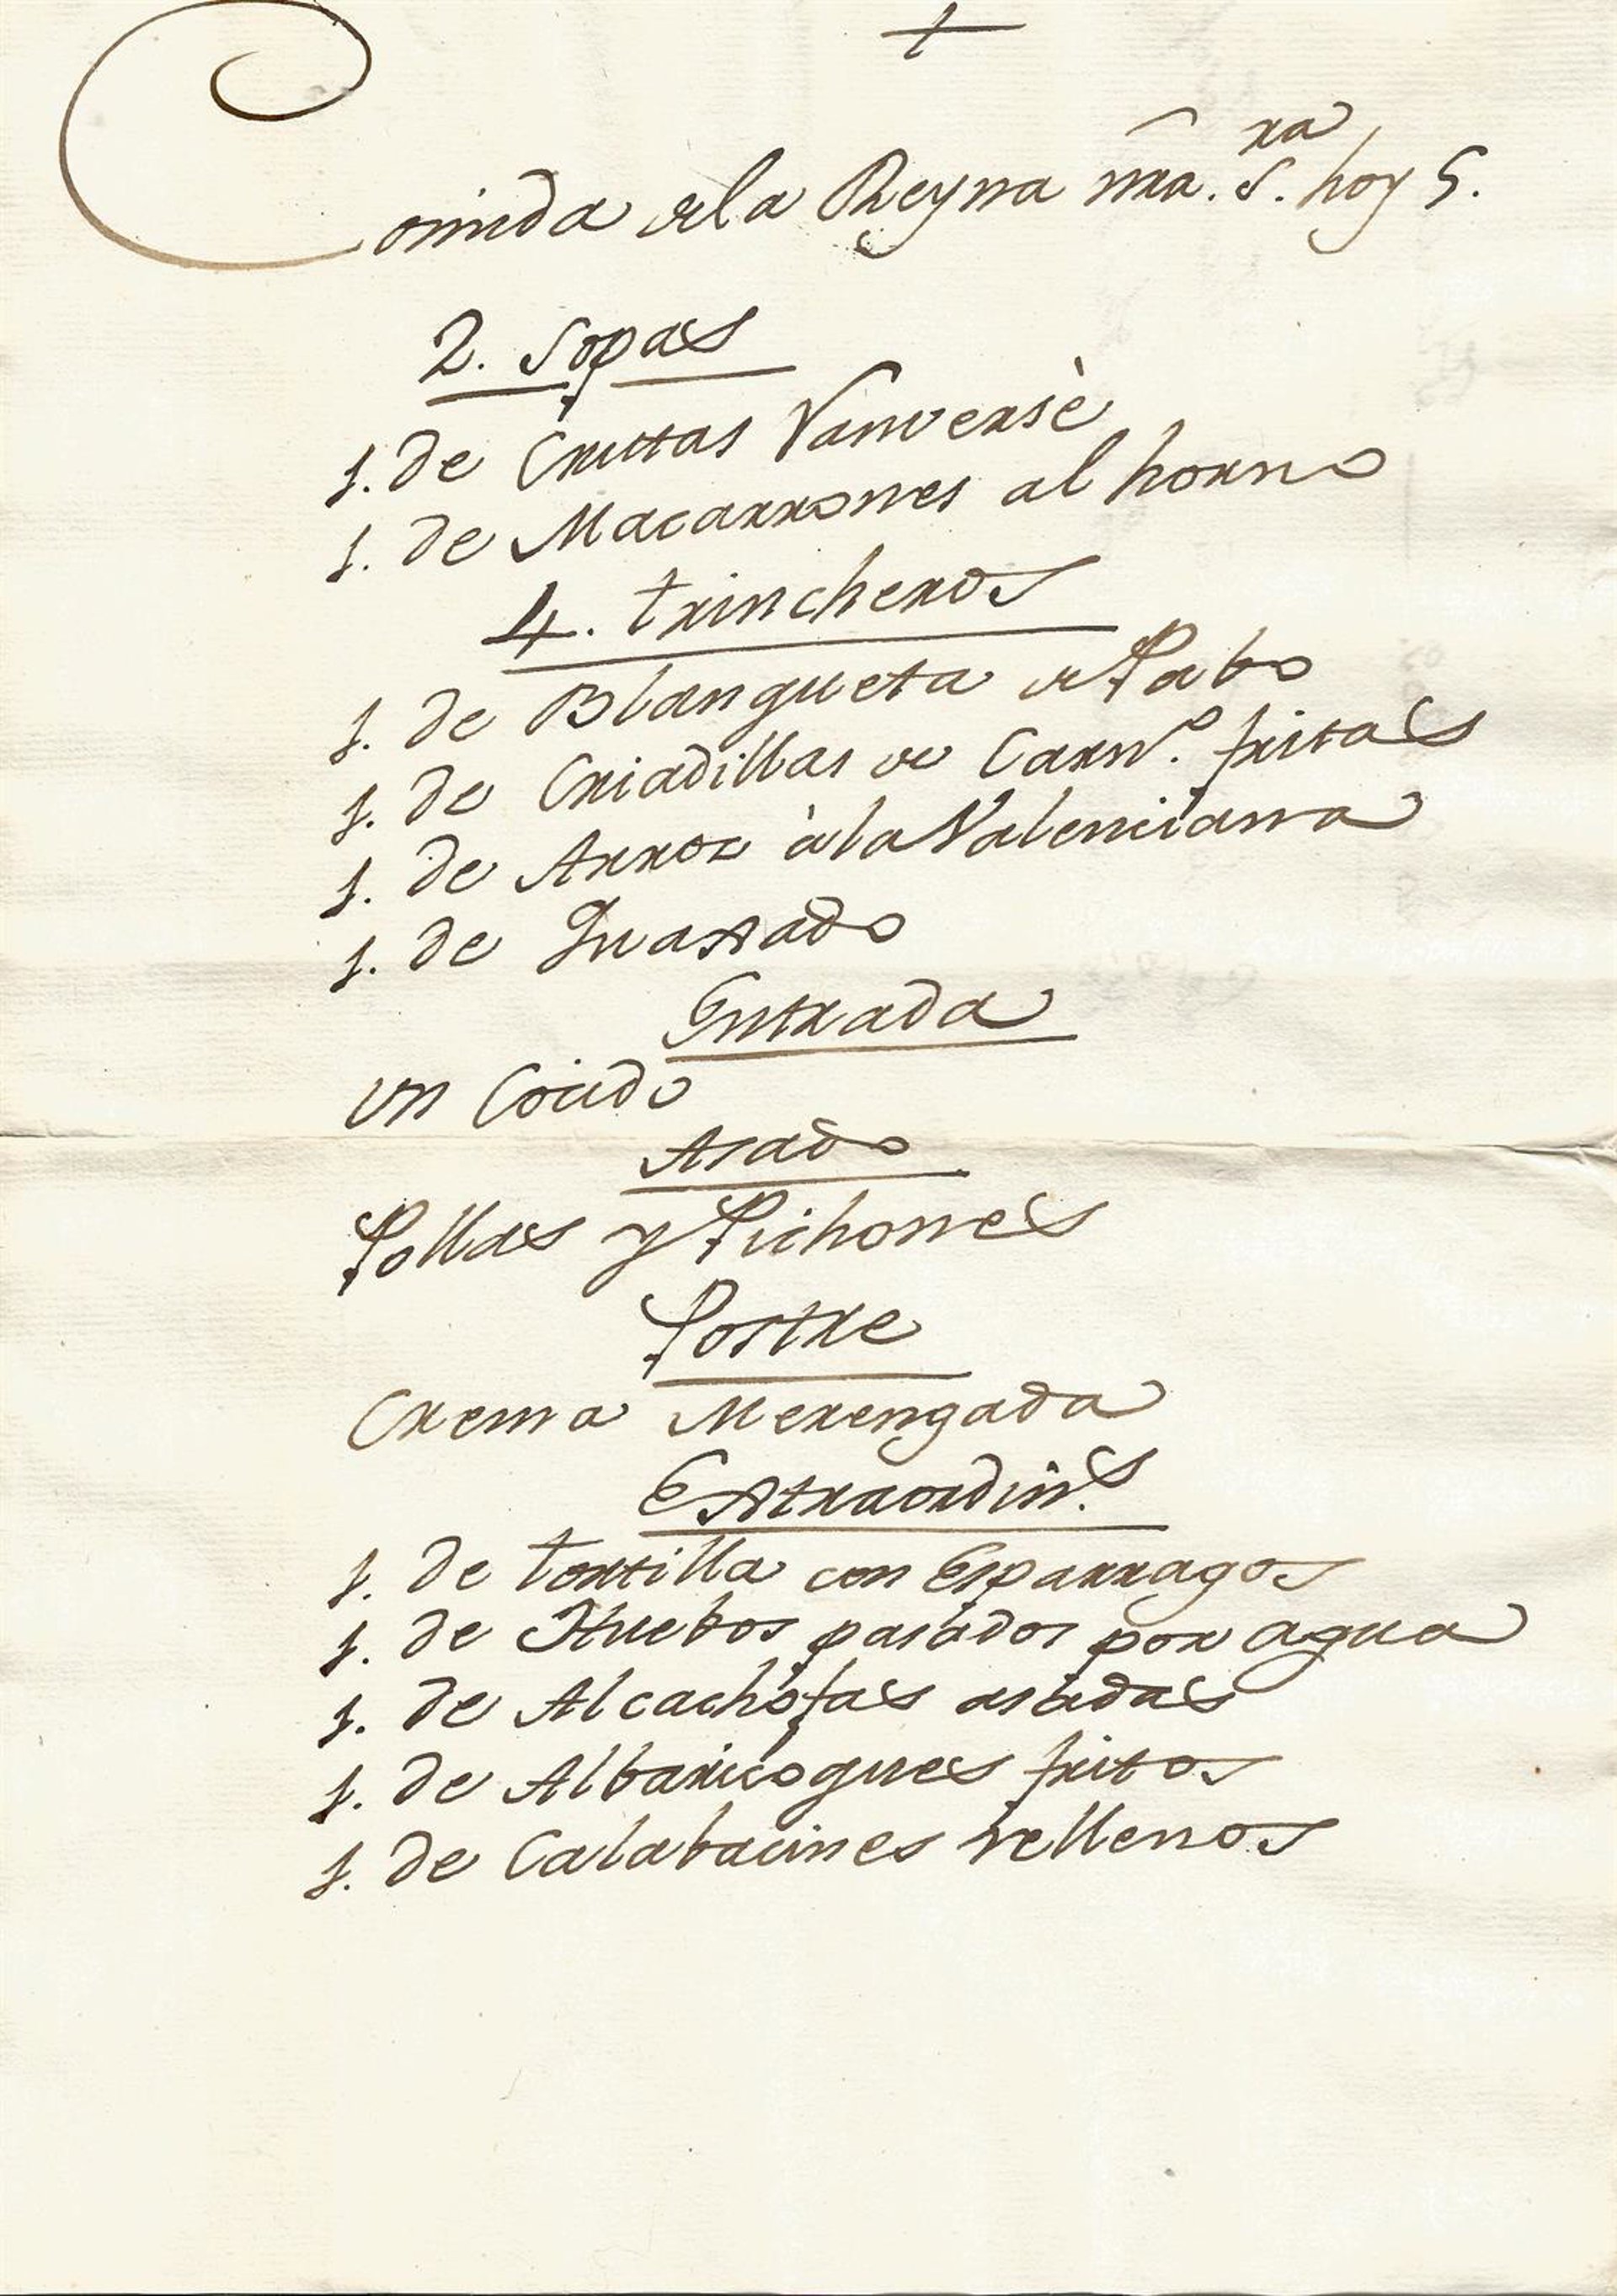 +
Comida de la Reyna nrã. S.ra hoy 5.
2. Sopas
1. de Crustas Vanversè
1. de Macarrones al horno
4. trincheros
1. de Blangueta de Pabo
1. de Criadillas de Carn.o fritas
1. de Arroz à la Valenciana
1. de Guasado
Entrada
un Cocido
Asado
Pollas y Pichones
Postre
Crema Merengada
Extraordin.s
1. de tortilla con Esparragos
1. de Huebos pasados por agua
1. de Alcachofas asadas
1. de Albaricoques fritos
1. de Calabacines rellenos